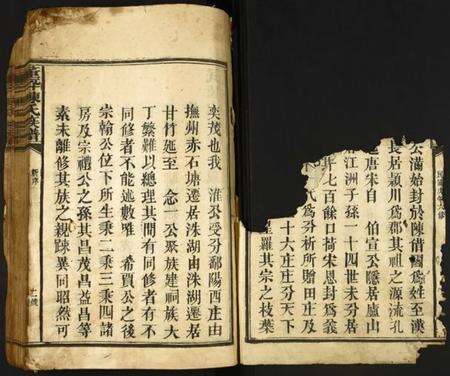 公滿始封於陳借國爲姓至漢
長居潁川爲郡其祖之源流孔
唐宋自 伯宣公隱居廬山
江洲子孫一十四世未分居
七百餘口荷宋恩封爲義
氏爲分析所贈田庄及
十六庄庄分天下
羅其宗之枝葉
奕茂也我 淮公受分鄱陽西庄由
撫州赤石塘遷居洙湖由洙湖遷居
甘竹延至 念一公聚族建祠族大
丁繁難以總理其間有同修者有不
同修者不能述數雖 希賁公之後
宗翰公位下所生乘二乘三乘四諸
房及宗禮公之孫其昌茂昌益昌等
素未離修其族之親踈異同昭然可
陳氏族譜
新序